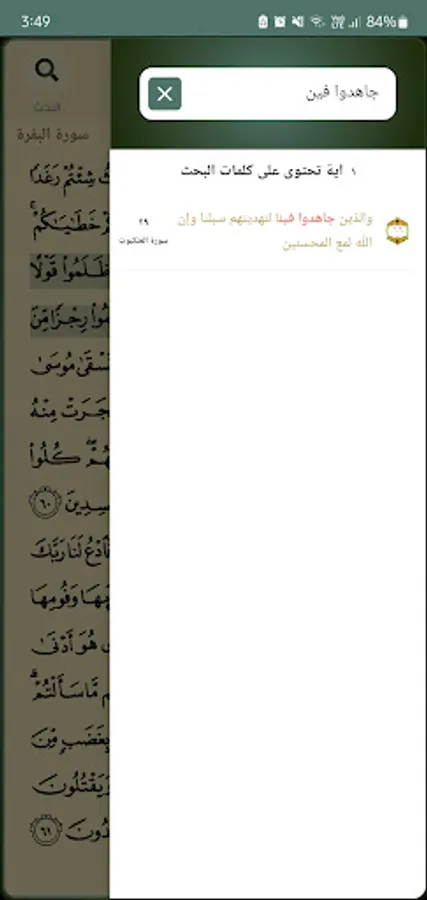 3:49
84%
البحث
سورة البقرة
جاهدوا فين
١ اية تحتوى على كلمات البحث
والذين جاهدوا فينا لنهدينهم سبلنا وإن
الله لمع المحسنين
٢٩
سورة العنكبوت
شِئْتُمْ رَغَدًا
خَطَٰيَٰكُمْ
ظَلَمُوا۟ قَوْلًا
رِجْزًا مِّنَ
مُوسَىٰ
مِنْهُ
كُلُوا۟
٦٠
فَٱدْعُ لَنَا رَبَّكَ
وَفُومِهَا
هُوَ أَدْنَىٰ
مَّا سَأَلْتُمْ
بِغَضَبٍ مِّنَ
وَيَقْتُلُونَ
٦١